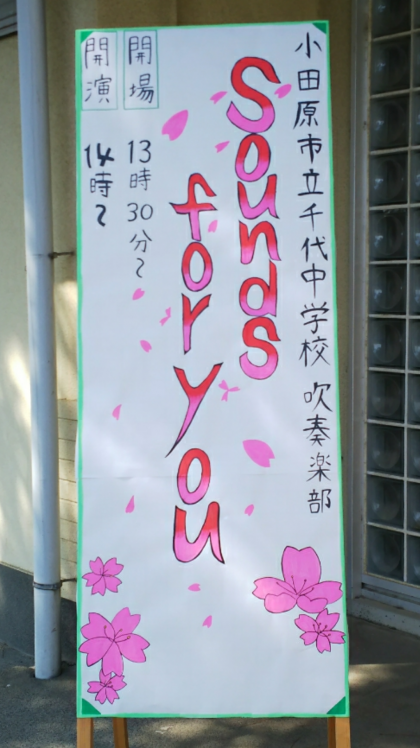 小田原市立千代中学校 吹奏楽部
Sounds
for you
開場 13時30分〜
開演 14時〜